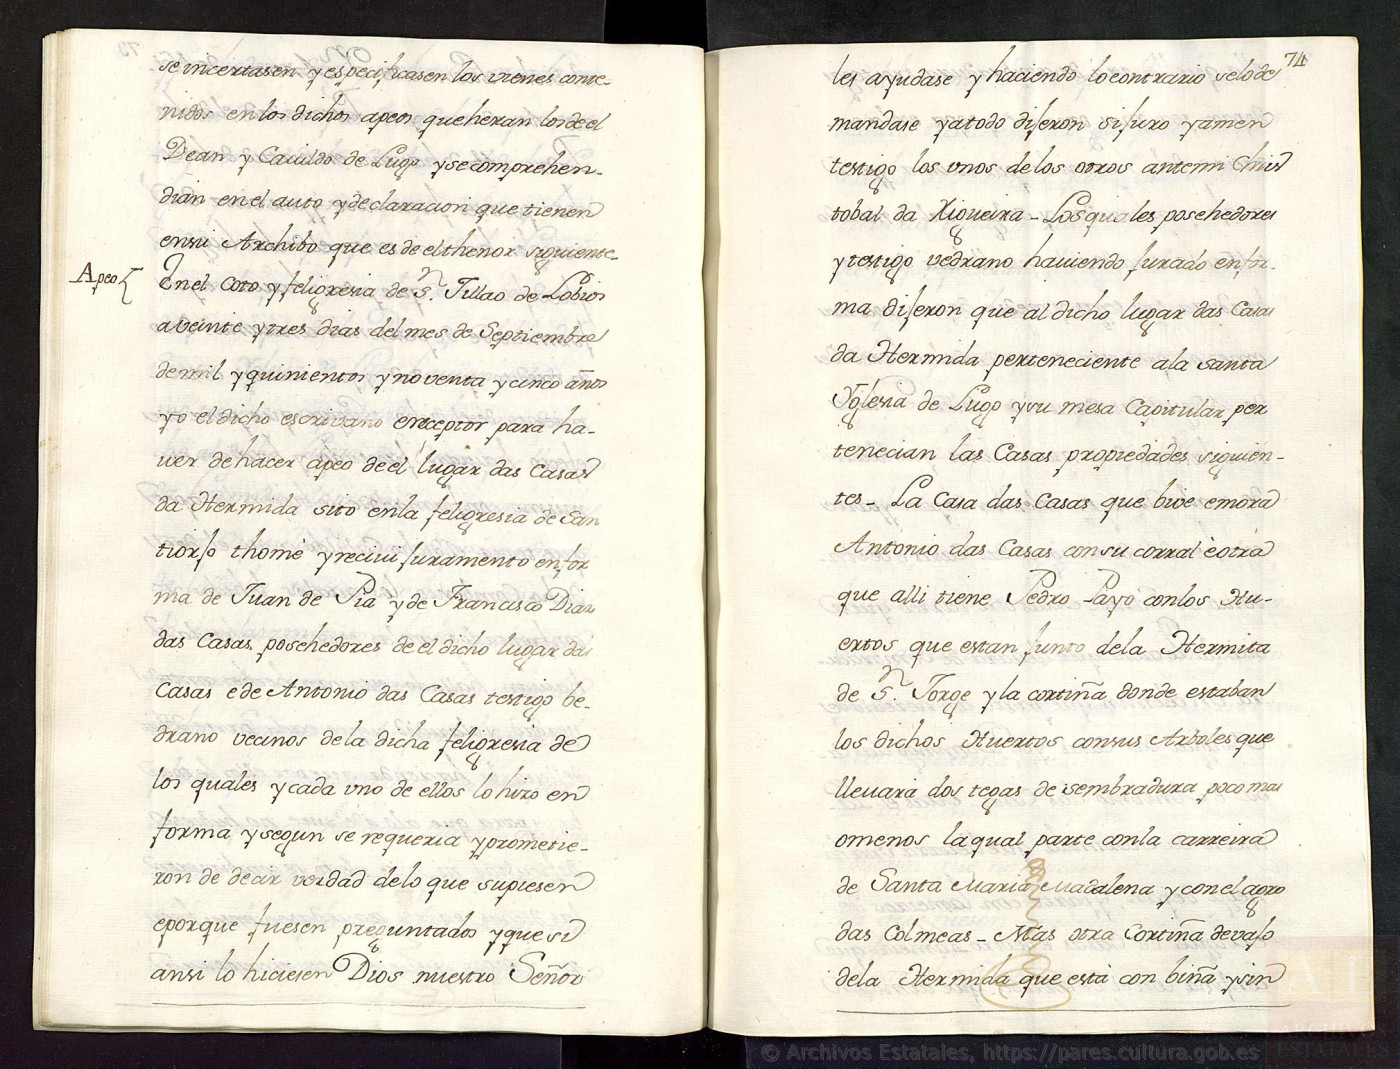 se incertasen y especificasen los vienes conte-
nidos en los dichos apeos que heran los de el
Dean y Cavildo de Lugo y se comprehen-
dian en el auto y declaracion que tienen
en su Archibo que es de el thenor siguiente
Apeo
En el Coto y feligresia de Sn. Jillao de Lobios
a veinte y tres dias del mes de Septiembre
de mil y quinientos y noventa y cinco años
yo el dicho escrivano e receptor para ha-
ver de hacer apeo de el lugar das Casas
da Hermida sito en la feligresia de San
tiorjo thomé y recivi juramento en for
ma de Juan de Pia y de Francisco Diaz
das Casas posehedores de el dicho lugar das
Casas e de Antonio das Casas testigo be-
drano vecinos de la dicha feligresia de
los quales y cada uno de ellos lo hizo en
forma y segun se requeria y prometie-
ron de decir verdad de lo que supiesen
e porque fuesen preguntados y que si
ansi lo hiciesen Dios nuestro Señor
74
les ayudase y haciendo lo contrario se lo de
mandase y a todo dijeron si juro y amen
testigo los unos de los otros ante mi Chris
tobal da Xiqueira - Los quales posehedores
y testigo vedrano haviendo jurado en for-
ma dijeron que al dicho lugar das Casas
da Hermida perteneciente a la santa
Yglesia de Lugo y su mesa Capitular per
tenecian las Casas propiedades siguien-
tes - La Casa das Casas que bive e mora
Antonio das Casas con su corral è otra
que alli tiene Pedro Payo con los Hu-
ertos que estan junto de la Hermita
de Sn. Jorge y la cortiña donde estaban
los dichos Huertos con sus Arboles que
llevará dos tegas de sembradura poco mas
o menos la qual parte con la carreira
de Santa Maria Madalena y con el agro
das Colmeas - Mas otra Cortiña de vajo
de la Hermida que está con biña y sin
© Archivos Estatales, https://pares.cultura.gob.es